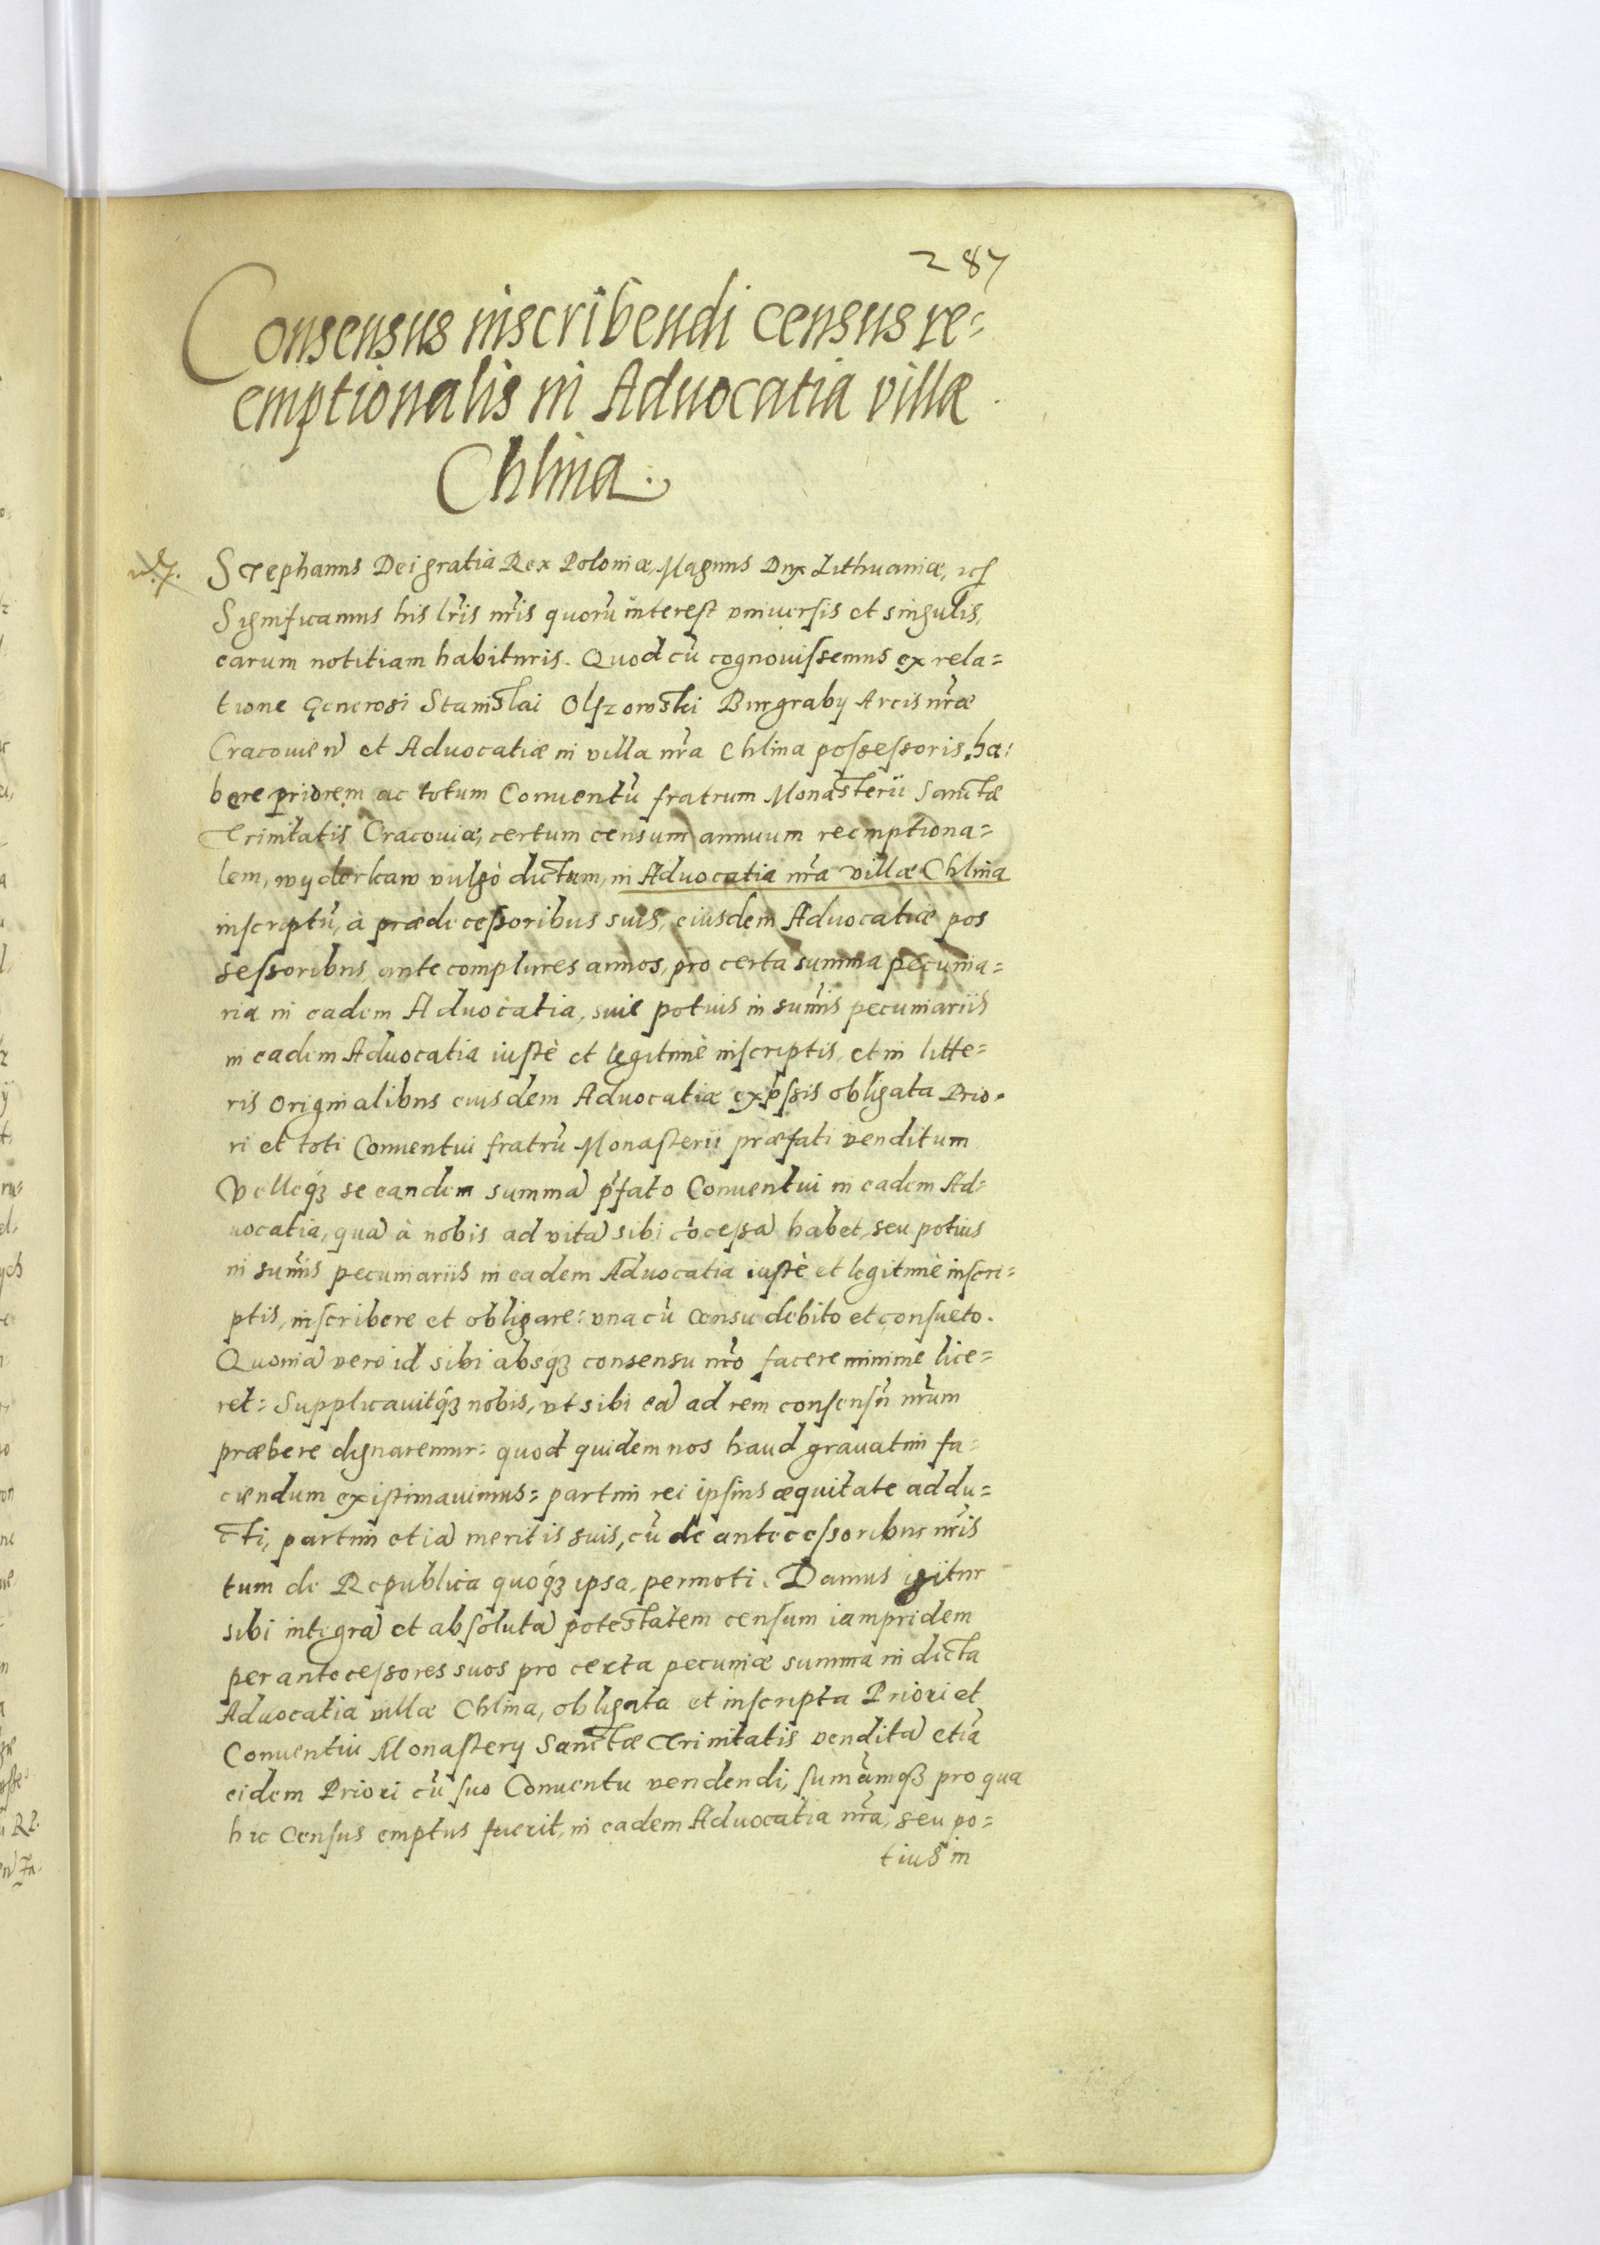 287
Consensus inscribendi census re=
emptionalis in Aduocatia villæ
Chlina.
Stephanus Dei gratia Rex Poloniæ, Magnus Dux Lithuaniæ, etc
Significamus his lr̃is nr̃is quorũ interest vniuersis et singulis,
earum notitiam habituris. Quod cũ cognouissemus ex rela=
tione Generosi Stanislai Olszowski Burgrabij Arcis nr̃æ
Cracouien̄ et Aduocatiæ in villa nr̃a Chlina possessoris, ha:
bere priorem ac totum Conuentũ fratrum Monasterii Sanctæ
Trinitatis Cracouiæ, certum censum annuum reemptiona=
lem, wyderkaw vulgò dictum, in Aduocatia nr̃a villæ Chlina
inscriptũ, à prædecessoribus suis, eiusdem Aduocatiæ pos
sessoribus ante complures annos, pro certa summa pecunia=
ria in eadem Aduocatia, siue potius in sum̃is pecuniariis
in eadem Aduocatia iustè et legitimè inscriptis, et in litte=
ris originalibus eiusdem Aduocatiæ exp̃ssis obligata Prio=
ri et toti Conuentui fratrũ Monasterii præfati venditum
Velleq́ꝫ se eandem summā p̃fato Conuentui in eadem Ad=
uocatia, quā à nobis ad vitā sibi cõcessā habet, seu potius
in sum̃is pecuniariis in eadem Aduocatia iustè et legitimè inscri=
ptis, inscribere et obligare: vna cũ censu debito et consueto.
Quoniā vero id sibi absq́ꝫ consensu nr̃o facere minime lice=
ret: Supplicauitq́ꝫ nobis, vt sibi eā ad rem consensũ nr̃um
præbere dignaremur: quod quidem nos haud grauatim fa=
ciendum existimauimus: partim rei ipsius æquitate addu=
cti, partim etiā meritis suis, cũ de antecessoribus nr̃is
tum de Republica quoq́ꝫ ipsa, permoti. Damus igitur
sibi integrā et absolutā potestatem censum iampridem
per antecessores suos pro certa pecuniæ summa in dicta
Aduocatia villæ Chlina, obligata et inscripta Priori et
Conuentui Monastery Sanctæ Trinitatis venditā etiā
eidem Priori cũ suo Conuentu vendendi, sum̃amqꝫ pro qua
hic census emptus fuerit, in eadem Aduocatia nr̃a, seu po=
tius in